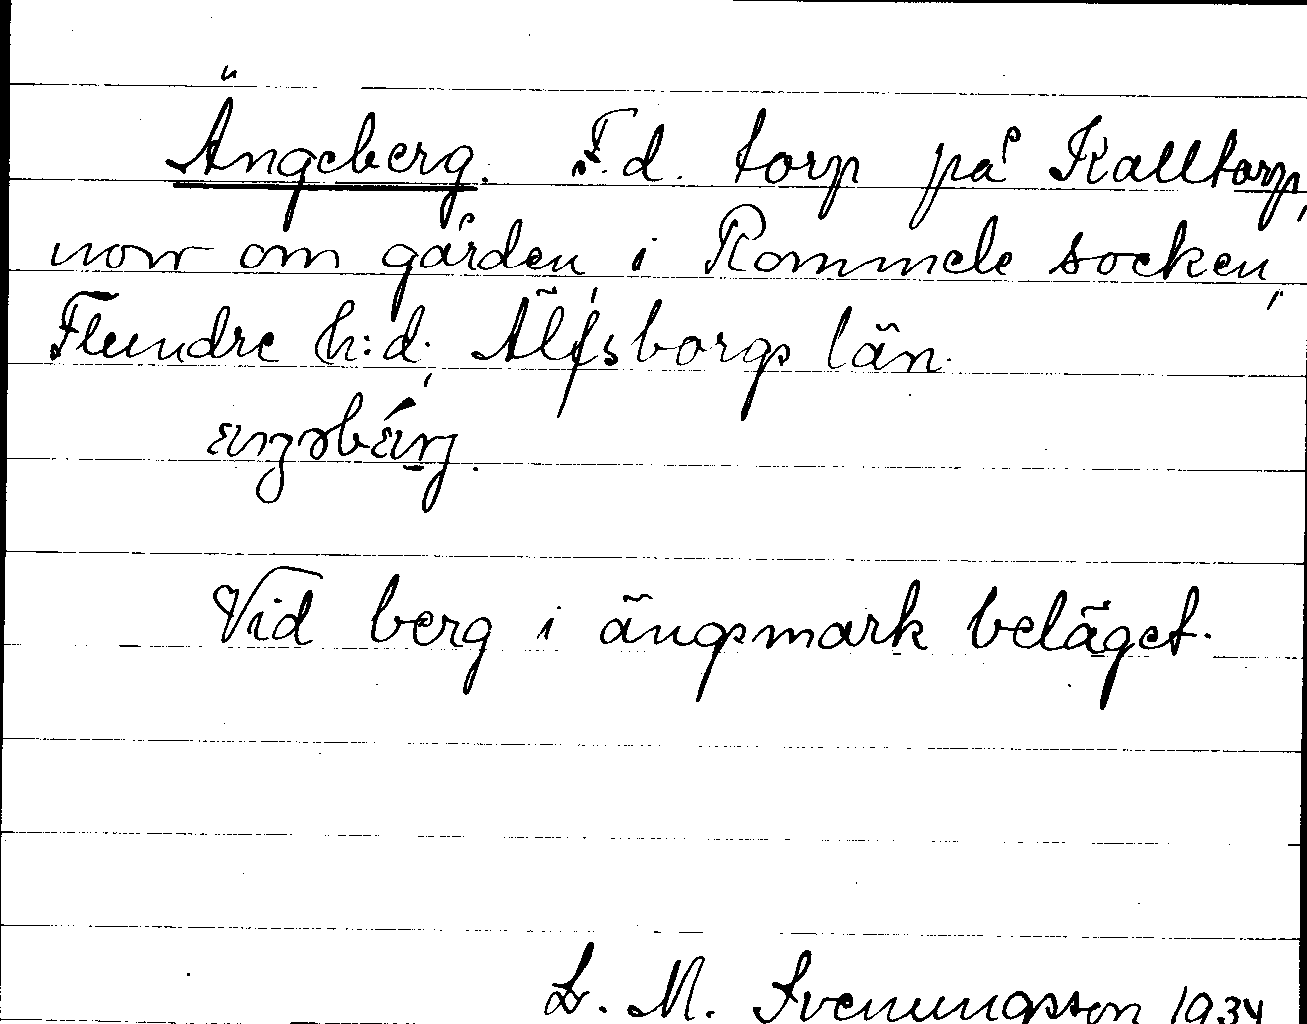 Ängeberg. F.d. torp på Kalltorp,
norr om gården i Rommele socken,
Flundre h:d, Älfsborgs län.
Vid berg i ängsmark beläget.
L. M. Svenungsson 1934